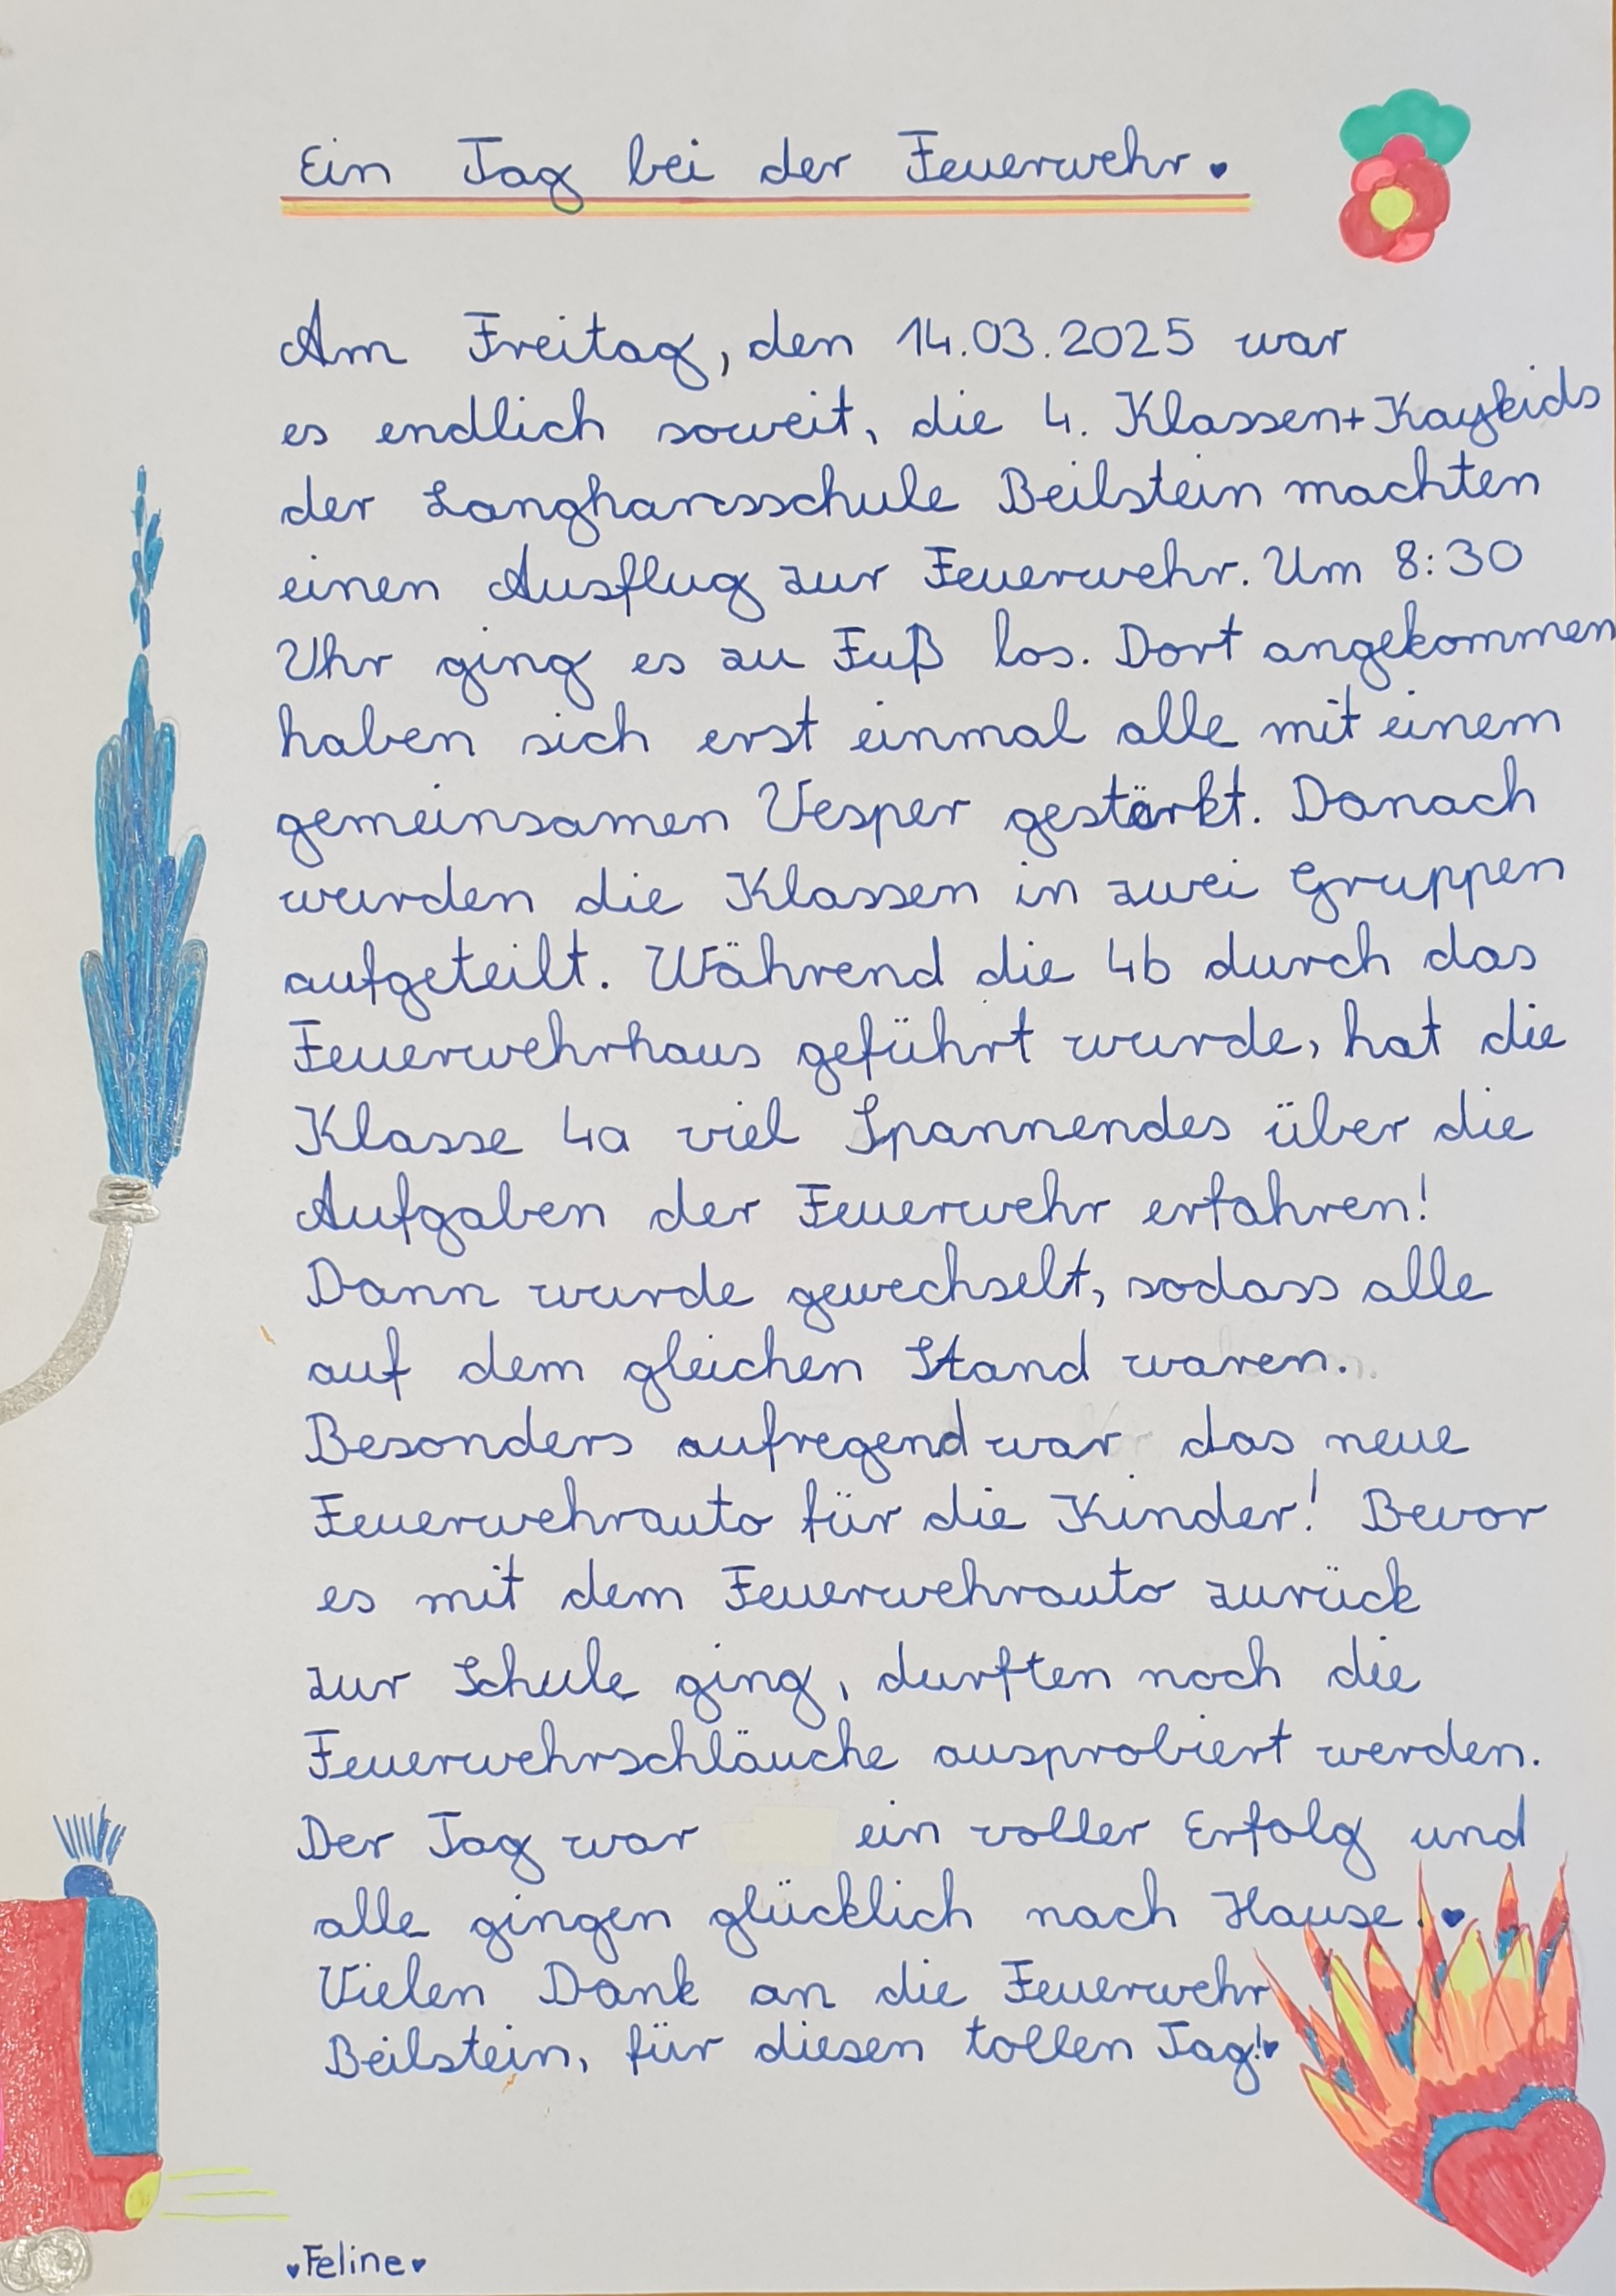 Ein Tag bei der Feuerwehr.
Am Freitag, den 14.03.2025 war
es endlich soweit, die 4. Klassen+Kaykids
der Langhansschule Beilstein machten
einen Ausflug zur Feuerwehr. Um 8:30
Uhr ging es zu Fuß los. Dort angekommen
haben sich erst einmal alle mit einem
gemeinsamen Vesper gestärkt. Danach
wurden die Klassen in zwei Gruppen
aufgeteilt. Während die 4b durch das
Feuerwehrhaus geführt wurde, hat die
Klasse 4a viel Spannendes über die
Aufgaben der Feuerwehr erfahren!
Dann wurde gewechselt, sodass alle
auf dem gleichen Stand waren.
Besonders aufregend war das neue
Feuerwehrauto für die Kinder! Bevor
es mit dem Feuerwehrauto zurück
zur Schule ging, durften noch die
Feuerwehrschläuche ausprobiert werden.
Der Tag war ein voller Erfolg und
alle gingen glücklich nach Hause!♥
Vielen Dank an die Feuerwehr
Beilstein, für diesen tollen Tag!♥
♥Feline♥